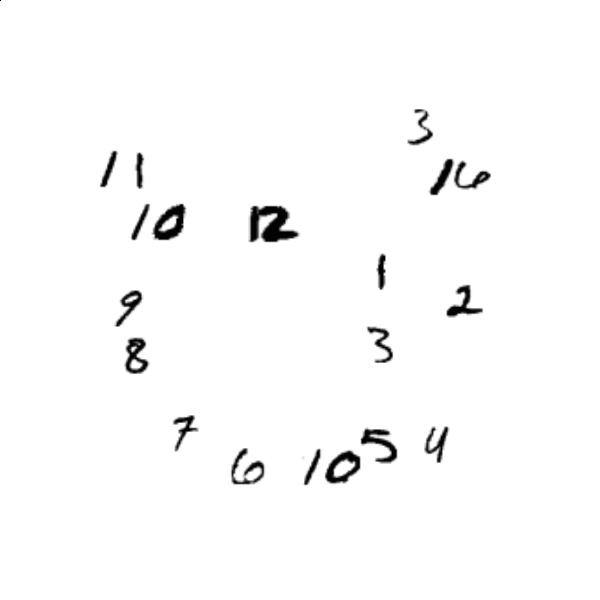 3
11 16
10 12
1
9 2
8 3
7 5 4
6 10